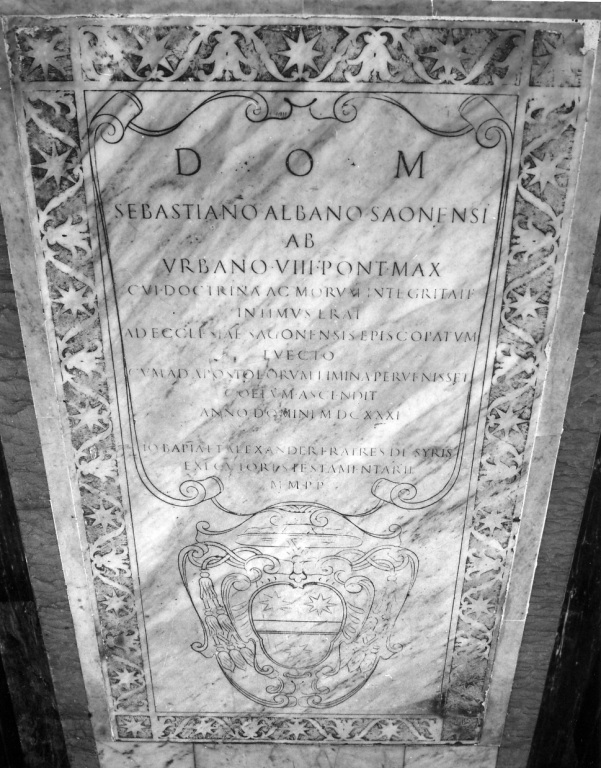 D · O · M
SEBASTIANO ALBANO SAONENSI
AB
VRBANO·VIII·PONT·MAX
CVI DOCTRINA AC MORVM INTEGRITATE
INTIMVS ERAT
AD ECCLESIAE SAGONENSIS EPISCOPATVM
EVECTO
CVM AD APOSTOLORVM LIMINA PERVENISSET
COELVM ASCENDIT
ANNO DOMINI M DC XXXI
IO BAPTA ET ALEXANDER FRATRES DE SYRIS
EXECVTORES TESTAMENTARII
M M P P